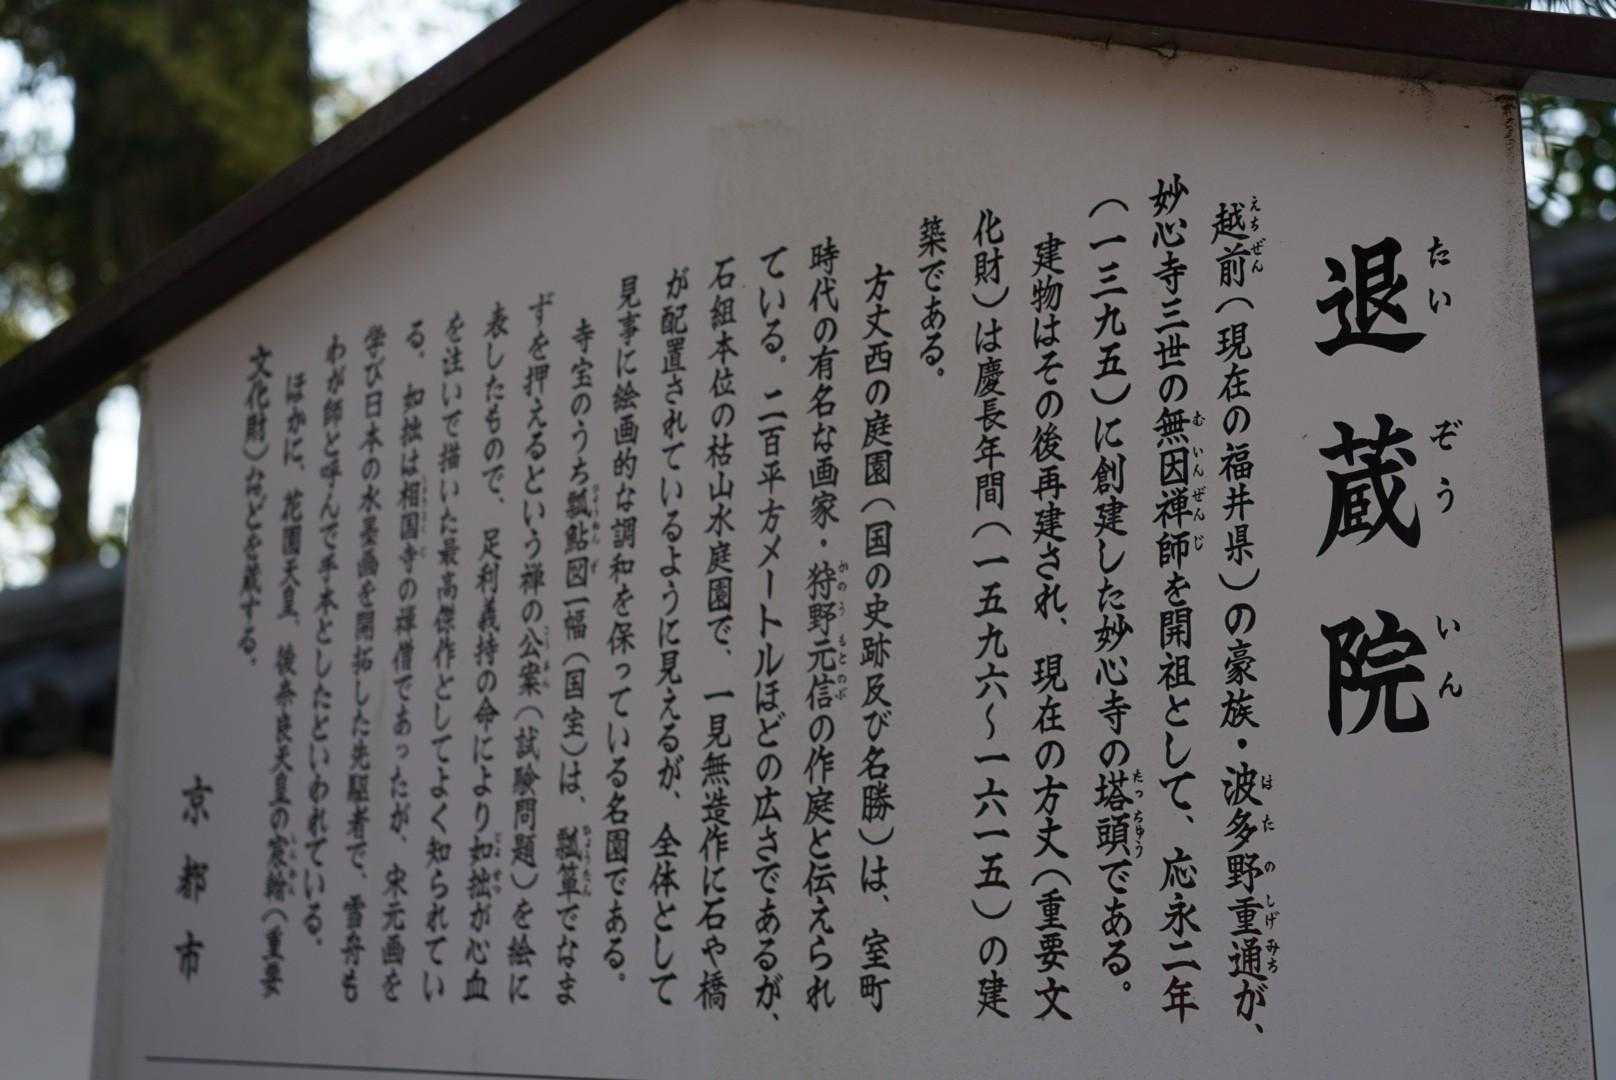 退蔵院
たいぞういん
越前（現在の福井県）の豪族・波多野重通が、
えちぜん
はたのしげみち
妙心寺三世の無因禅師を開祖として、応永二年
むいんぜんじ
（一三九五）に創建した妙心寺の塔頭である。
たっちゅう
建物はその後再建され、現在の方丈（重要文
化財）は慶長年間（一五九六～一六一五）の建
築である。
方丈西の庭園（国の史跡及び名勝）は、室町
時代の有名な画家・狩野元信の作庭と伝えられ
かのうもとのぶ
ている。二百平方メートルほどの広さであるが、
石組本位の枯山水庭園で、一見無造作に石や橋
が配置されているように見えるが、全体として
見事に絵画的な調和を保っている名園である。
寺宝のうち瓢鮎図一幅（国宝）は、瓢箪でなま
ひょうねんず
ひょうたん
ずを押えるという禅の公案（試験問題）を絵に
こうあん
表したもので、足利義持の命により如拙が心血
じょせつ
を注いで描いた最高傑作としてよく知られてい
る。如拙は相国寺の禅僧であったが、宋元画を
しょうこくじ
学び日本の水墨画を開拓した先駆者で、雪舟も
わが師と呼んで手本としたといわれている。
ほかに、花園天皇、後奈良天皇の宸翰（重要
しんかん
文化財）などを蔵する。
京都市